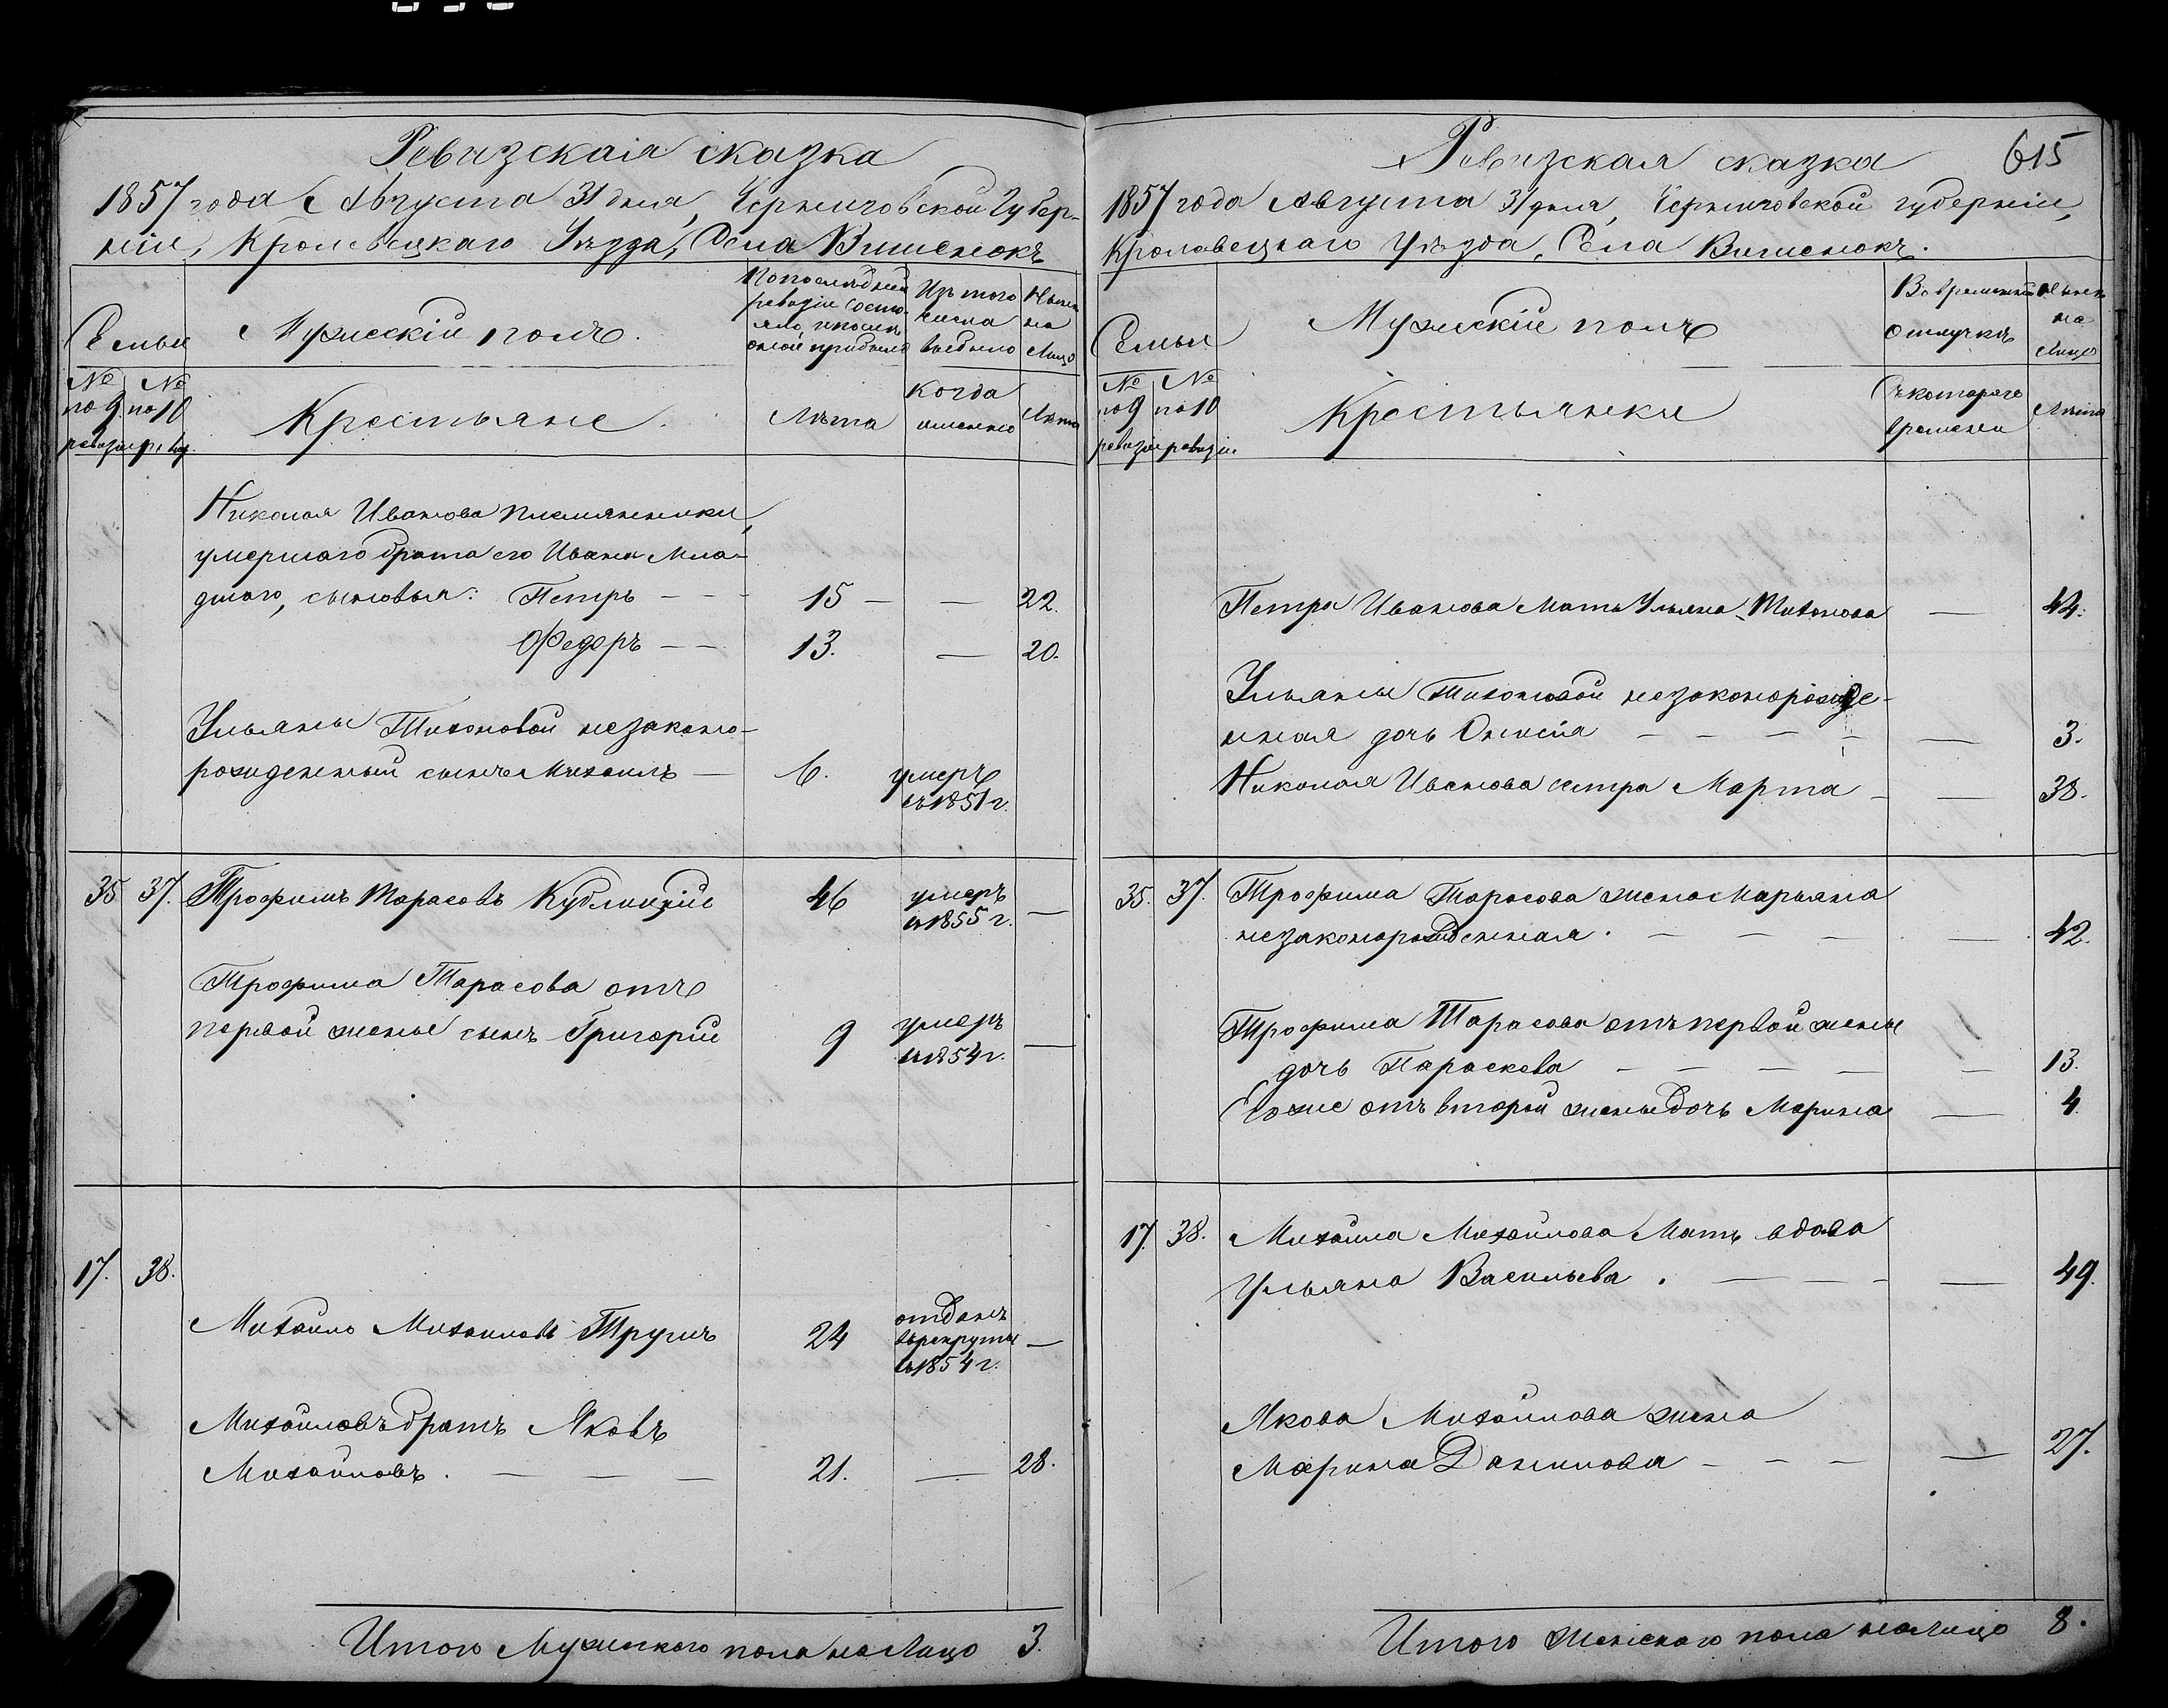 Ревизская сказка
1857 года Августа 31 дня, Черниговской Губер-
ніи, Кролевецкаго Уѣзда, Села Вишенокъ
Семьи
Мужескій полъ.
По последней
ревизіи состо-
яло, и после
оной прибыло
Изъ того
числа
выбыло
Ныне
на
Лицо
№ №
по 9 по 10
ревизіи ревиз.
Крестьяне.
Лѣта
Когда
именно
Лѣта
Николая Иванова племянники,
умершаго брата его Ивана Мла-
дшаго, сыновья: Петръ — — — 15 — — 22.
Федоръ — — 13. — 20.
Ульяны Тихоновой незаконо-
рожденный сынъ Михаилъ — 6. умеръ
въ 1851 г.
35 37. Трофимъ Тарасовъ Кублицкій 46 умеръ
въ 1855 г. —
Трофима Тарасова отъ
первой жены сынъ Григорій 9 умеръ
въ 1854 г. —
17. 38.
Михайло Михайловъ Трушъ 24 отданъ
въ рекруты
въ 1854 г. —
Михайловъ братъ Яковъ
Михайловъ. — — — 21. — 28.
Итого Мужескаго пола на Лицо 3.
Ревизская сказка 615
1857 года Августа 31 дня, Черниговской губерніи,
Кролевецкаго Уѣзда, Села Вишенокъ.
Семьи
Мужескіе полъ
Во временной
отлучкѣ
Ныне
на
Лицо
№ №
по 9 по 10
ревизіи ревизіи
Крестьянки
Съ котораго
времени
Лѣта
Петра Иванова Мать Ульяна Тихонова — 44.
Ульяны Тихоновой незаконорожде-
нная дочь Онисія — — — — — 3.
Николая Иванова сестра Марта — — 38.
35. 37. Трофима Тарасова жена Марьяна
незаконорожденная. — — — — 42.
Трофима Тарасова отъ первой жены
дочь Параскева — — — — — 13.
Его же отъ второй жены дочь Марина — 4
17. 38. Михайла Михайлова Мать вдова
Ульяна Васильева. — — — — 49.
Якова Михайлова жена
Марина Данилова — — — — 27.
Итого Женскаго пола налицо 8.